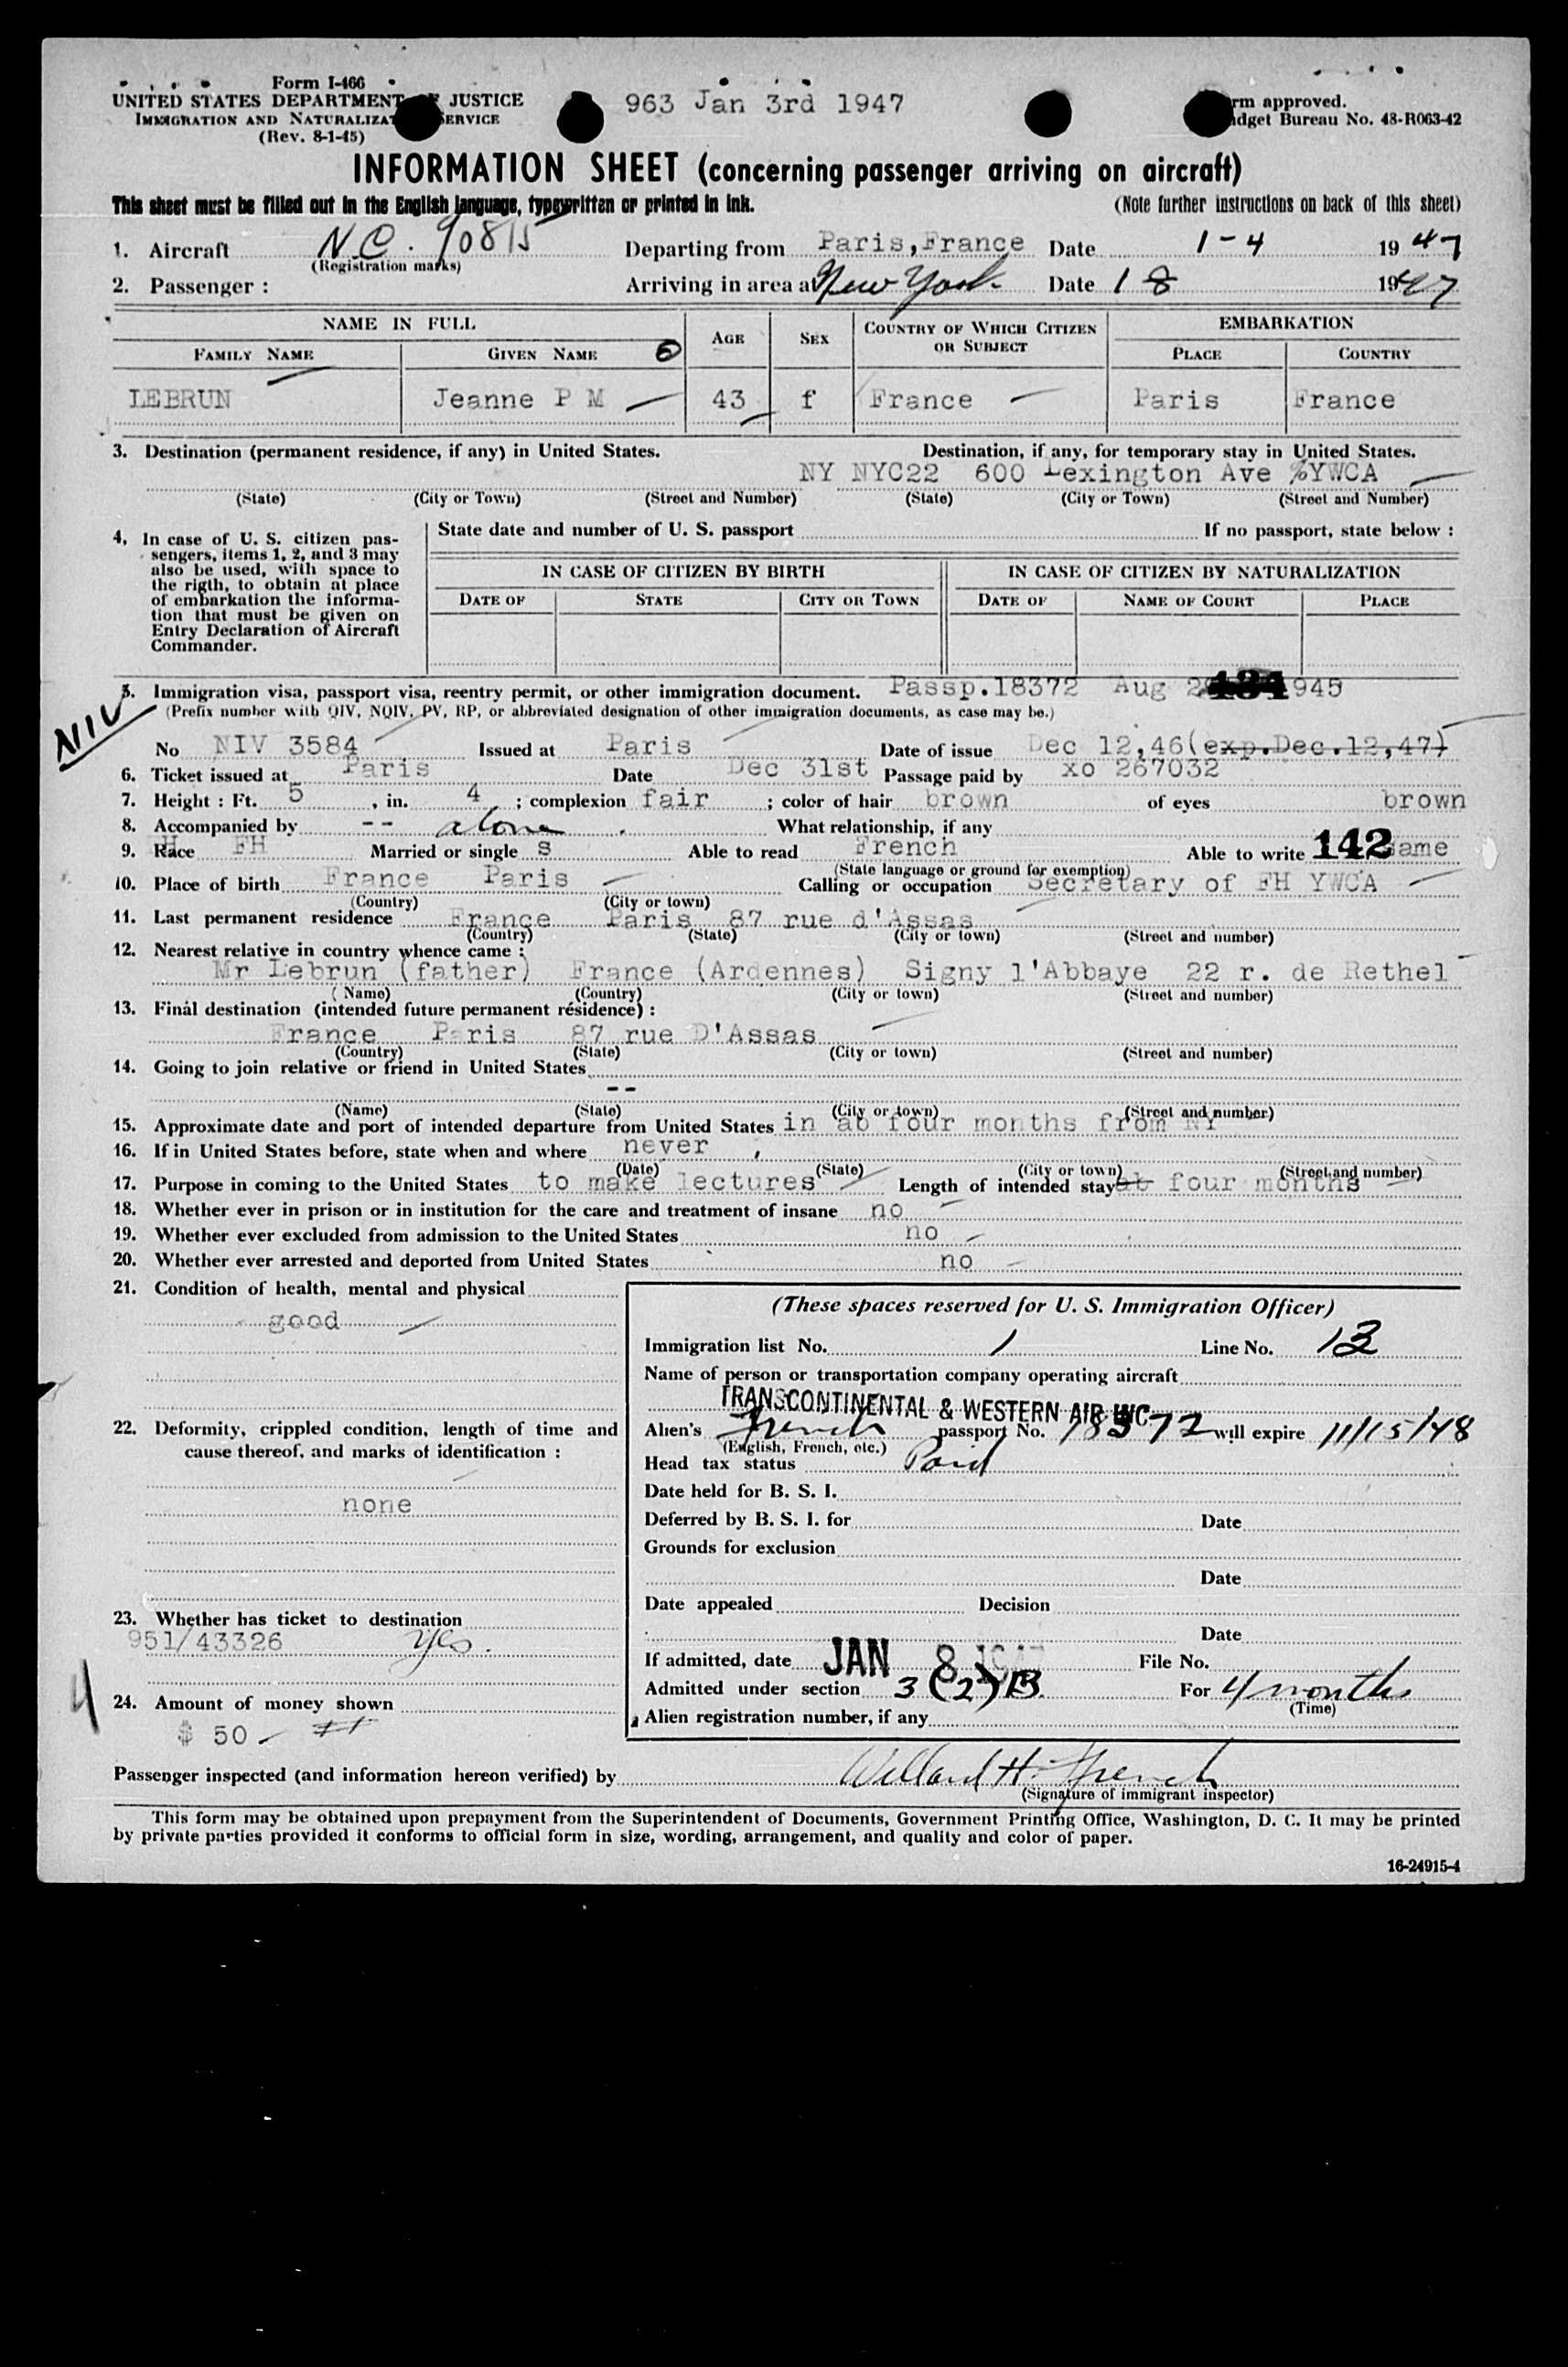 Form I-466
UNITED STATES DEPARTMENT JUSTICE 963 Jan 3rd 1947 rm approved.
IMMIGRATION AND NATURALIZAT ERVICE dget Bureau No. 48-R063-42
(Rev. 8-1-45)
INFORMATION SHEET (concerning passenger arriving on aircraft)
This sheet must be filled out in the English language, typewritten or printed in ink. (Note further instructions on back of this sheet)
1. Aircraft N.C. 90815 Departing from Paris,France Date 1-4 1947
(Registration marks)
2. Passenger : Arriving in area at New York Date 1 8 1947
NAME IN FULL AGE SEX COUNTRY OF WHICH CITIZEN OR SUBJECT EMBARKATION
FAMILY NAME GIVEN NAME PLACE COUNTRY
LEBRUN Jeanne P M 43 f France Paris France
3. Destination (permanent residence, if any) in United States. Destination, if any, for temporary stay in United States.
NY NYC22 600 Lexington Ave %YWCA
(State) (City or Town) (Street and Number) (State) (City or Town) (Street and Number)
4. In case of U. S. citizen pas-
sengers, items 1, 2, and 3 may
also be used, with space to
the rigth, to obtain at place
of embarkation the informa-
tion that must be given on
Entry Declaration of Aircraft
Commander.
State date and number of U. S. passport If no passport, state below :
IN CASE OF CITIZEN BY BIRTH IN CASE OF CITIZEN BY NATURALIZATION
DATE OF STATE CITY OR TOWN DATE OF NAME OF COURT PLACE
NIV
5. Immigration visa, passport visa, reentry permit, or other immigration document. Passp.18372 Aug 1945
(Prefix number with QIV, NQIV, PV, RP, or abbreviated designation of other immigration documents, as case may be.)
No NIV 3584 Issued at Paris Date of issue Dec 12,46(exp.Dec.12,47)
6. Ticket issued at Paris Date Dec 31st Passage paid by xo 267032
7. Height : Ft. 5 , in. 4 ; complexion fair ; color of hair brown of eyes brown
8. Accompanied by -- alone What relationship, if any
9. Race FH Married or single s Able to read French Able to write 142 same
(State language or ground for exemption)
10. Place of birth France Paris Calling or occupation Secretary of FH YWCA
(Country) (City or town)
11. Last permanent residence France Paris 87 rue d'Assas
(Country) (State) (City or town) (Street and number)
12. Nearest relative in country whence came :
Mr Lebrun (father) France (Ardennes) Signy l'Abbaye 22 r. de Rethel
(Name) (Country) (City or town) (Street and number)
13. Final destination (intended future permanent résidence) :
France Paris 87 rue D'Assas
(Country) (State) (City or town) (Street and number)
14. Going to join relative or friend in United States
--
(Name) (State) (City or town) (Street and number)
15. Approximate date and port of intended departure from United States in ab four months from NY
16. If in United States before, state when and where never
(Date) (State) (City or town) (Street and number)
17. Purpose in coming to the United States to make lectures Length of intended stay ab four months
18. Whether ever in prison or in institution for the care and treatment of insane no
19. Whether ever excluded from admission to the United States no
20. Whether ever arrested and deported from United States no
21. Condition of health, mental and physical
good
22. Deformity, crippled condition, length of time and
cause thereof, and marks of identification :
none
23. Whether has ticket to destination
951/43326 yes.
4
24. Amount of money shown
$ 50
(These spaces reserved for U. S. Immigration Officer)
Immigration list No. 1 Line No. 13
Name of person or transportation company operating aircraft
TRANSCONTINENTAL & WESTERN AIR INC
Alien's French passport No. 18372 will expire 11/15/48
(English, French, etc.)
Head tax status Paid
Date held for B. S. I.
Deferred by B. S. I. for Date
Grounds for exclusion
Date
Date appealed Decision
Date
If admitted, date JAN 8 1947 File No.
Admitted under section 3 (2) B. For 4 months
(Time)
Alien registration number, if any
Passenger inspected (and information hereon verified) by Willard H. French
(Signature of immigrant inspector)
This form may be obtained upon prepayment from the Superintendent of Documents, Government Printing Office, Washington, D. C. It may be printed
by private parties provided it conforms to official form in size, wording, arrangement, and quality and color of paper.
16-24915-4